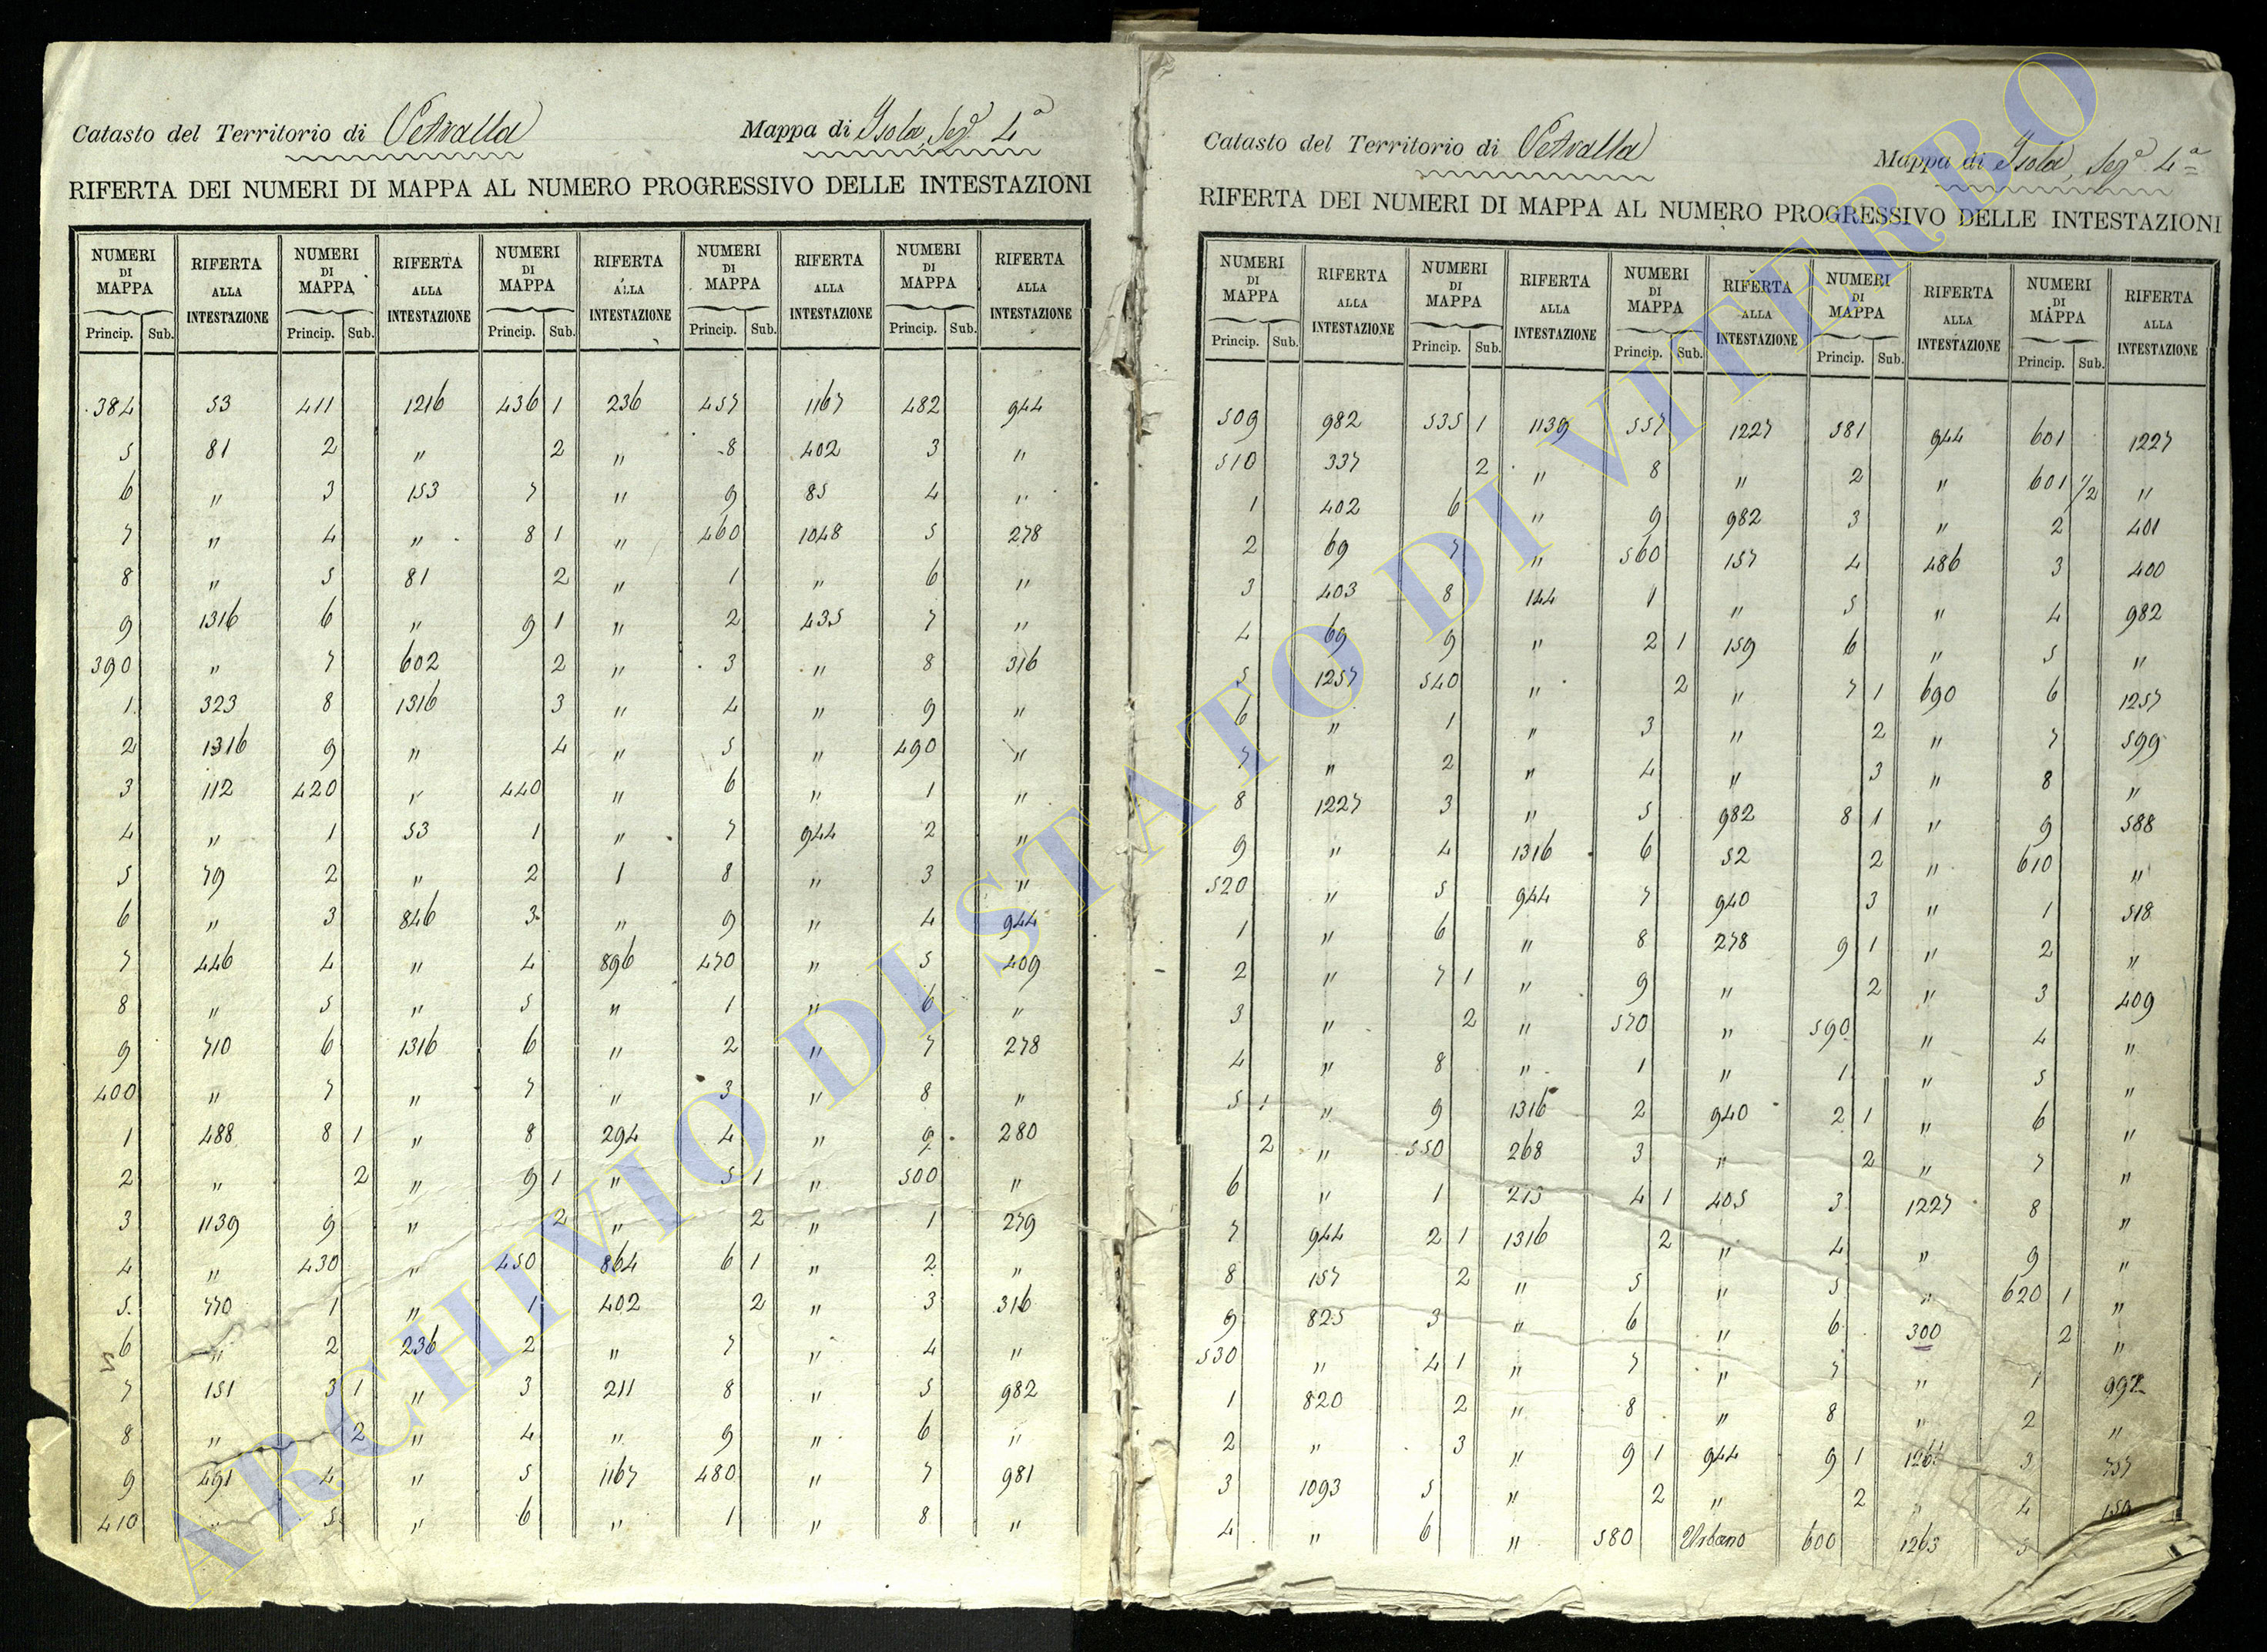 Catasto del Territorio di Vetralla Mappa di Isola, Segᵉ 4ª
RIFERTA DEI NUMERI DI MAPPA AL NUMERO PROGRESSIVO DELLE INTESTAZIONI
NUMERI DI MAPPA RIFERTA ALLA INTESTAZIONE NUMERI DI MAPPA RIFERTA ALLA INTESTAZIONE NUMERI DI MAPPA RIFERTA ALLA INTESTAZIONE NUMERI DI MAPPA RIFERTA ALLA INTESTAZIONE NUMERI DI MAPPA RIFERTA ALLA INTESTAZIONE
Princip. Sub. Princip. Sub. Princip. Sub. Princip. Sub. Princip. Sub.
384 53 411 1216 436 1 236 457 1167 482 944
5 81 2 " 2 " 8 402 3 "
6 " 3 153 7 " 9 85 4 "
7 " 4 " 8 1 " 460 1048 5 278
8 " 5 81 2 " 1 " 6 "
9 1316 6 " 9 1 " 2 435 7 "
390 " 7 602 2 " 3 " 8 316
1 323 8 1316 3 " 4 " 9 "
2 1316 9 " 4 " 5 " 490 "
3 112 420 " 440 " 6 " 1 "
4 " 1 53 1 " 7 944 2 "
5 79 2 " 2 1 8 " 3 "
6 " 3 846 3 " 9 " 4 944
7 446 4 " 4 896 470 " 5 409
8 " 5 " 5 " 1 " 6 "
9 710 6 1316 6 " 2 " 7 278
400 " 7 " 7 " 3 " 8 "
1 488 8 1 " 8 294 4 " 9 280
2 " 2 " 9 1 " 5 1 " 500 "
3 1139 9 " 2 " 2 " 1 279
4 " 430 " 450 864 6 1 " 2 "
5 770 1 " 1 402 2 " 3 316
6 " 2 236 2 " 7 " 4 "
7 151 3 1 " 3 211 8 " 5 982
8 " 2 " 4 " 9 " 6 "
9 491 4 " 5 1167 480 " 7 981
410 " 5 " 6 " 1 " 8 "
Catasto del Territorio di Vetralla Mappa di Isola, Segᵉ 4ª
RIFERTA DEI NUMERI DI MAPPA AL NUMERO PROGRESSIVO DELLE INTESTAZIONI
NUMERI DI MAPPA RIFERTA ALLA INTESTAZIONE NUMERI DI MAPPA RIFERTA ALLA INTESTAZIONE NUMERI DI MAPPA RIFERTA ALLA INTESTAZIONE NUMERI DI MAPPA RIFERTA ALLA INTESTAZIONE NUMERI DI MAPPA RIFERTA ALLA INTESTAZIONE
Princip. Sub. Princip. Sub. Princip. Sub. Princip. Sub. Princip. Sub.
509 982 535 1 1139 557 1227 581 944 601 1227
510 337 2 " 8 " 2 " 601 1/2 "
1 402 6 " 9 982 3 " 2 401
2 69 7 " 560 157 4 486 3 400
3 403 8 144 1 " 5 " 4 982
4 69 9 " 2 1 159 6 " 5 "
5 1257 540 " 2 " 7 1 690 6 1257
6 " 1 " 3 " 2 " 7 599
7 " 2 " 4 " 3 " 8 "
8 1227 3 " 5 982 8 1 " 9 588
9 " 4 1316 6 52 2 " 610 "
520 " 5 944 7 940 3 " 1 518
1 " 6 " 8 278 9 1 " 2 "
2 " 7 1 " 9 " 2 " 3 409
3 " 2 " 570 " 590 " 4 "
4 " 8 " 1 " 1 " 5 "
5 1 " 9 1316 2 940 2 1 " 6 "
2 " 550 268 3 " 2 " 7 "
6 " 1 215 4 1 405 3 1227 8 "
7 944 2 1 1316 2 " 4 " 9 "
8 157 2 " 5 " 5 " 620 1 "
9 825 3 " 6 " 6 300 2 "
530 " 4 1 " 7 " 7 " 1 992
1 820 2 " 8 " 8 " 2 "
2 " 3 " 9 1 944 9 1 3 757
3 1093 5 " 2 " 2 " 4 150
4 " 6 " 580 Urbano 600 1263 5
ARCHIVIO DI STATO DI VITERBO